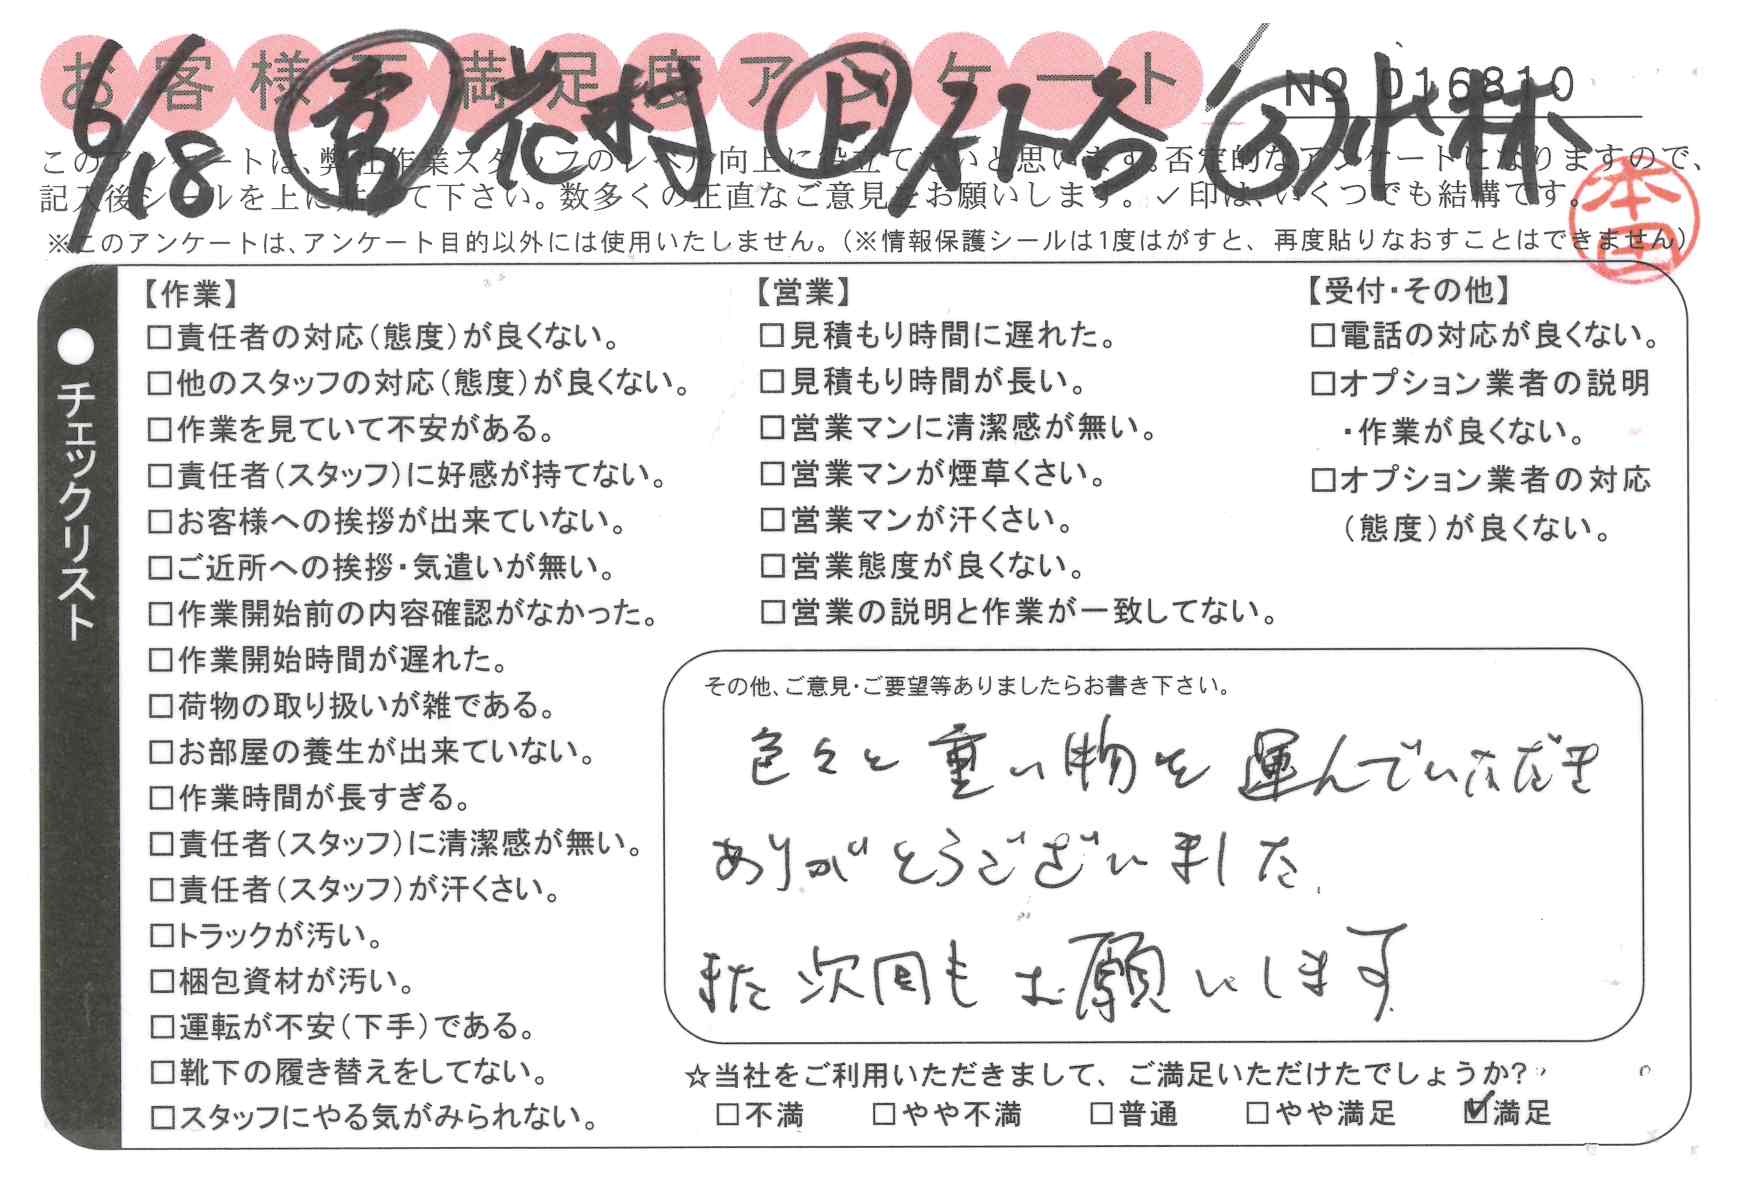 お客様不満足度アンケート
№ 016810
6/18 営 花村 上 谷 3 小林
このアンケートは、弊社作業スタッフのレベル向上に役立てたいと思います。否定的なアンケートになりますので、
記入後シールを上に貼って下さい。数多くの正直なご意見をお願いします。✓印は、いくつでも結構です。
本田
※このアンケートは、アンケート目的以外には使用いたしません。(※情報保護シールは1度はがすと、再度貼りなおすことはできません)
●チェックリスト
【作業】
□責任者の対応(態度)が良くない。
□他のスタッフの対応(態度)が良くない。
□作業を見ていて不安がある。
□責任者(スタッフ)に好感が持てない。
□お客様への挨拶が出来ていない。
□ご近所への挨拶・気遣いが無い。
□作業開始前の内容確認がなかった。
□作業開始時間が遅れた。
□荷物の取り扱いが雑である。
□お部屋の養生が出来ていない。
□作業時間が長すぎる。
□責任者(スタッフ)に清潔感が無い。
□責任者(スタッフ)が汗くさい。
□トラックが汚い。
□梱包資材が汚い。
□運転が不安(下手)である。
□靴下の履き替えをしてない。
□スタッフにやる気がみられない。
【営業】
□見積もり時間に遅れた。
□見積もり時間が長い。
□営業マンに清潔感が無い。
□営業マンが煙草くさい。
□営業マンが汗くさい。
□営業態度が良くない。
□営業の説明と作業が一致してない。
【受付・その他】
□電話の対応が良くない。
□オプション業者の説明
・作業が良くない。
□オプション業者の対応
(態度)が良くない。
その他、ご意見・ご要望等ありましたらお書き下さい。
色々と重い物を運んでいただき
ありがとうございました。
また次回もお願いします
☆当社をご利用いただきまして、ご満足いただけたでしょうか?
□不満 □やや不満 □普通 □やや満足 ☑満足